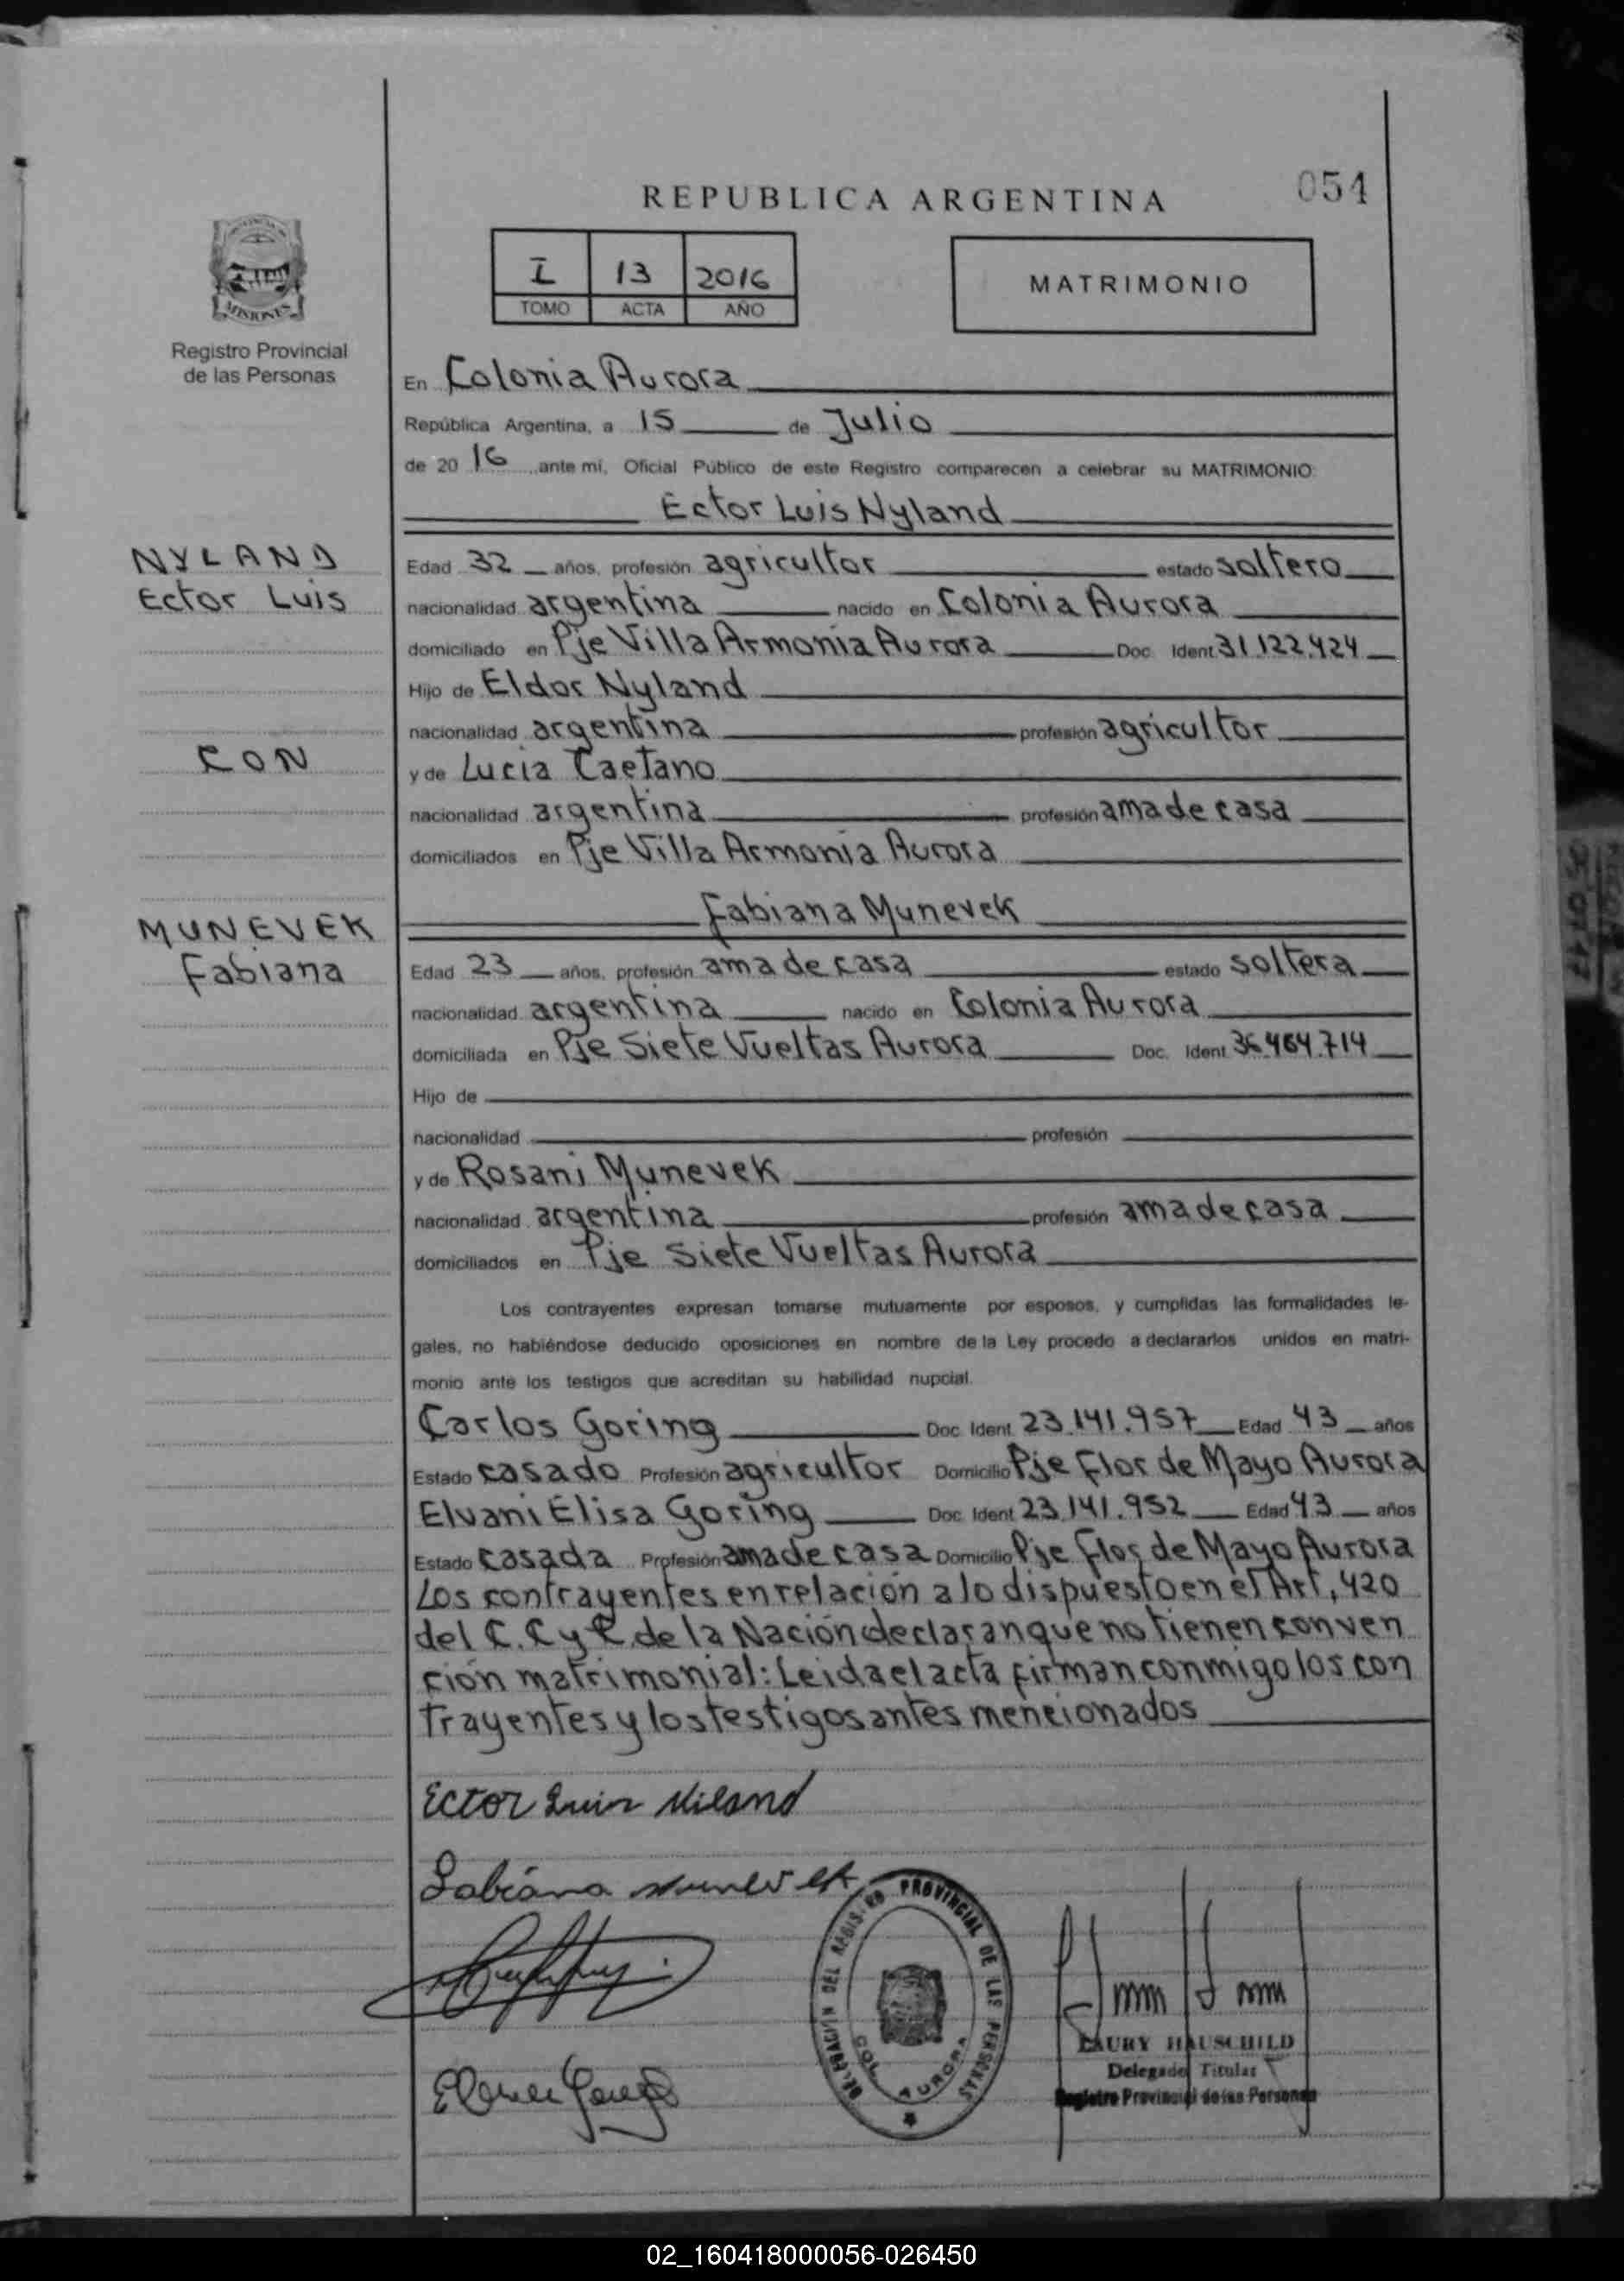 REPUBLICA ARGENTINA
054
I 13 2016
TOMO ACTA AÑO
MATRIMONIO
MISIONES
Registro Provincial
de las Personas
En Colonia Aurora
República Argentina, a 15 de Julio
de 2016 ante mí, Oficial Público de este Registro comparecen a celebrar su MATRIMONIO:
Ector Luis Nyland
NYLAND
Ector Luis
CON
MUNEVEK
Fabiana
Edad 32 años, profesión agricultor estado soltero
nacionalidad argentina nacido en Colonia Aurora
domiciliado en Pje Villa Armonia Aurora Doc. Ident 31.122.424
Hijo de Eldor Nyland
nacionalidad argentina profesión agricultor
y de Lucia Caetano
nacionalidad argentina profesión ama de casa
domiciliados en Pje Villa Armonia Aurora
Fabiana Munevek
Edad 23 años, profesión ama de casa estado soltera
nacionalidad argentina nacido en Colonia Aurora
domiciliada en Pje Siete Vueltas Aurora Doc. Ident. 36.464.714
Hijo de
nacionalidad profesión
y de Rosani Munevek
nacionalidad argentina profesión ama de casa
domiciliados en Pje Siete Vueltas Aurora
Los contrayentes expresan tomarse mutuamente por esposos, y cumplidas las formalidades le-
gales, no habiéndose deducido oposiciones en nombre de la Ley procedo a declararlos unidos en matri-
monio ante los testigos que acreditan su habilidad nupcial.
Carlos Goring Doc. Ident. 23.141.957 Edad 43 años
Estado casado Profesión agricultor Domicilio Pje Flor de Mayo Aurora
Elvani Elisa Goring Doc. Ident 23.141.952 Edad 43 años
Estado casada Profesión ama de casa Domicilio Pje Flor de Mayo Aurora
Los contrayentes en relación a lo dispuesto en el Art, 420
del C. C y C. de la Nación declaran que no tienen conven
ción matrimonial: Leida el acta firman conmigo los con
trayentes y los testigos antes mencionados
Ector Luis Niland
Fabiana Munevek
DELEGACIÓN DEL REGISTRO PROVINCIAL DE LAS PERSONAS
COL. AURORA
LAURY HAUSCHILD
Delegado Titular
Registro Provincial de las Personas
02_160418000056-026450